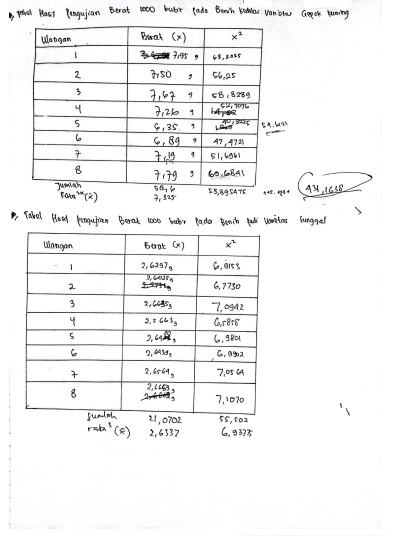 Tabel Hasil Pengujian Berat 1000 butir Pada Benih Varietas Gepak Kuning
Ulangan Berat (x) x²
1 7,95 g 63,2025
2 7,50 g 56,25
3 7,67 g 58,8289
4 7,26 g 52,7076
5 6,35 g 40,3225
6 6,89 g 47,4721
7 7,19 g 51,6961
8 7,79 g 60,6841
Jumlah 58,6
Rata²(x̄) 7,325 53,895475 431,1638
Tabel Hasil pengujian Berat 1000 butir Pada Benih Padi Varietas tunggal
Ulangan Berat (x) x²
1 2,6297 g 6,9153
2 2,6025 g 6,7730
3 2,6635 g 7,0942
4 2,5663 g 6,5858
5 6,9801
6 2,6439 g 6,9902
7 2,6564 g 7,0564
8 2,6659 g 7,1070
Jumlah 21,0702 55,502
rata²(x̄) 2,6337 6,9375